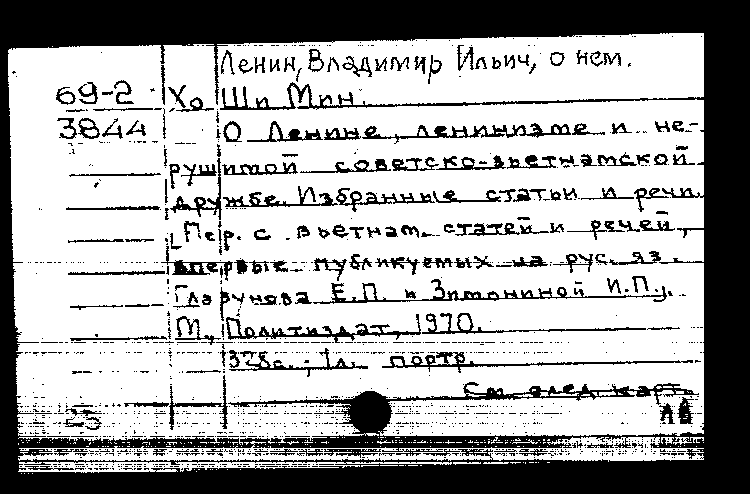 Ленин, Владимир Ильич, о нем.
69-2 Хо Ши Мин.
3844 О Ленине, ленинизме и не-
рушимой советско-вьетнамской
дружбе. Избранные статьи и речи.
[Пер. с вьетнам. статей и речей,
впервые публикуемых на рус. яз.
Глазунова Е.П. и Зимониной И.П.].
М., Политиздат, 1970.
328с.; 1л. портр.
См. след. карт.
25 ЛВ